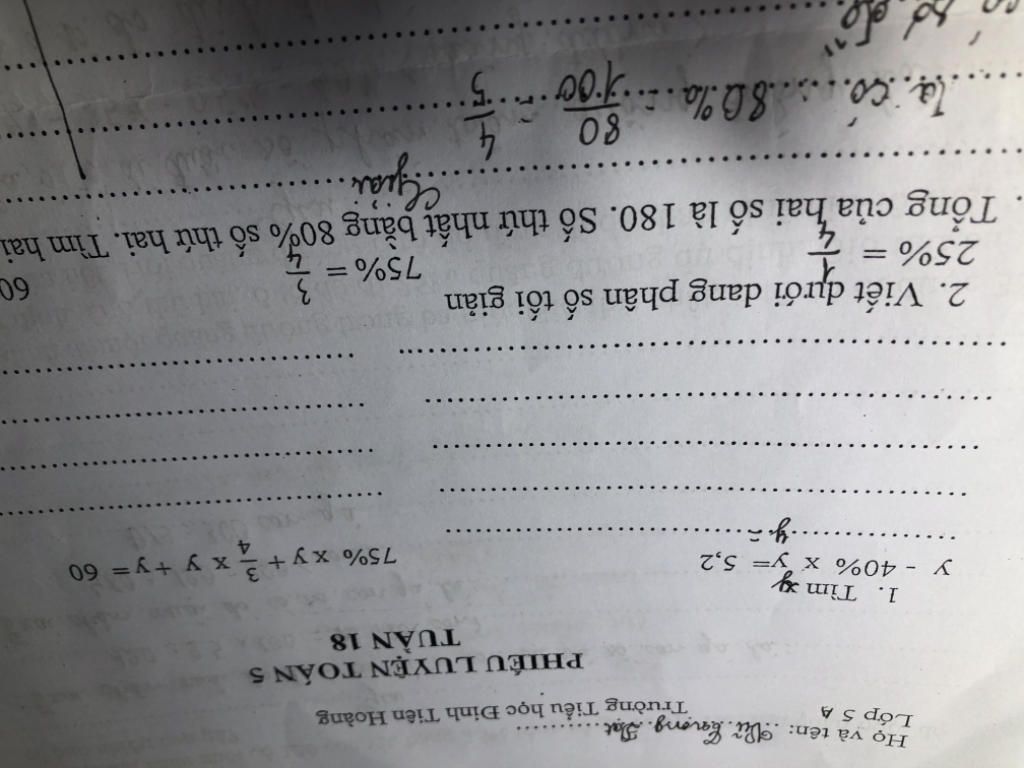 Họ và tên: Vũ
Lớp 5 A Trường Tiểu học Đinh Tiên Hoàng
PHIẾU LUYỆN TOÁN 5
TUẦN 18
1. Tìm y
y - 40% x y = 5,2 75% x y + 3/4 x y + y = 60
y =
2. Viết dưới dang phân số tối giản
25% = 1/4 75% = 3/4 60
. Tổng của hai số là 180. Số thứ nhất bằng 80% số thứ hai. Tìm hai
Giải
Ta có: 80% = 80/100 = 4/5
có sơ đồ